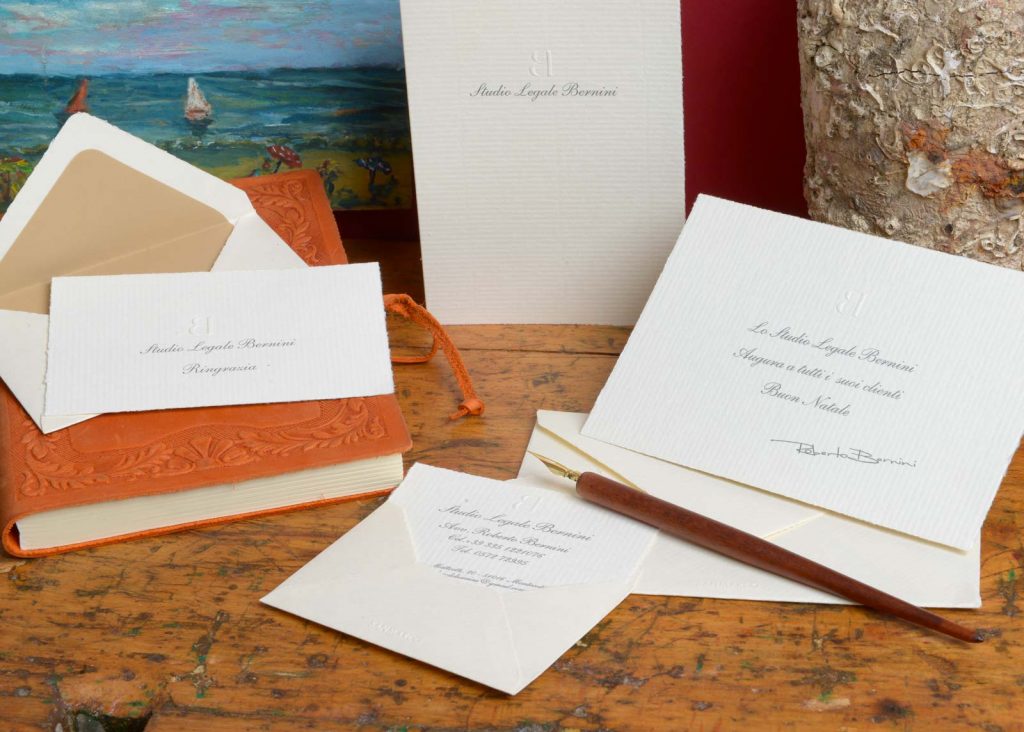 B
Studio Legale Bernini
B
Studio Legale Bernini
Ringrazia
B
Lo Studio Legale Bernini
Augura a tutti i suoi clienti
Buon Natale
Roberto Bernini
B
Studio Legale Bernini
Avv. Roberto Bernini
Cel. +39 335 1221076
Tel. 0572 72995